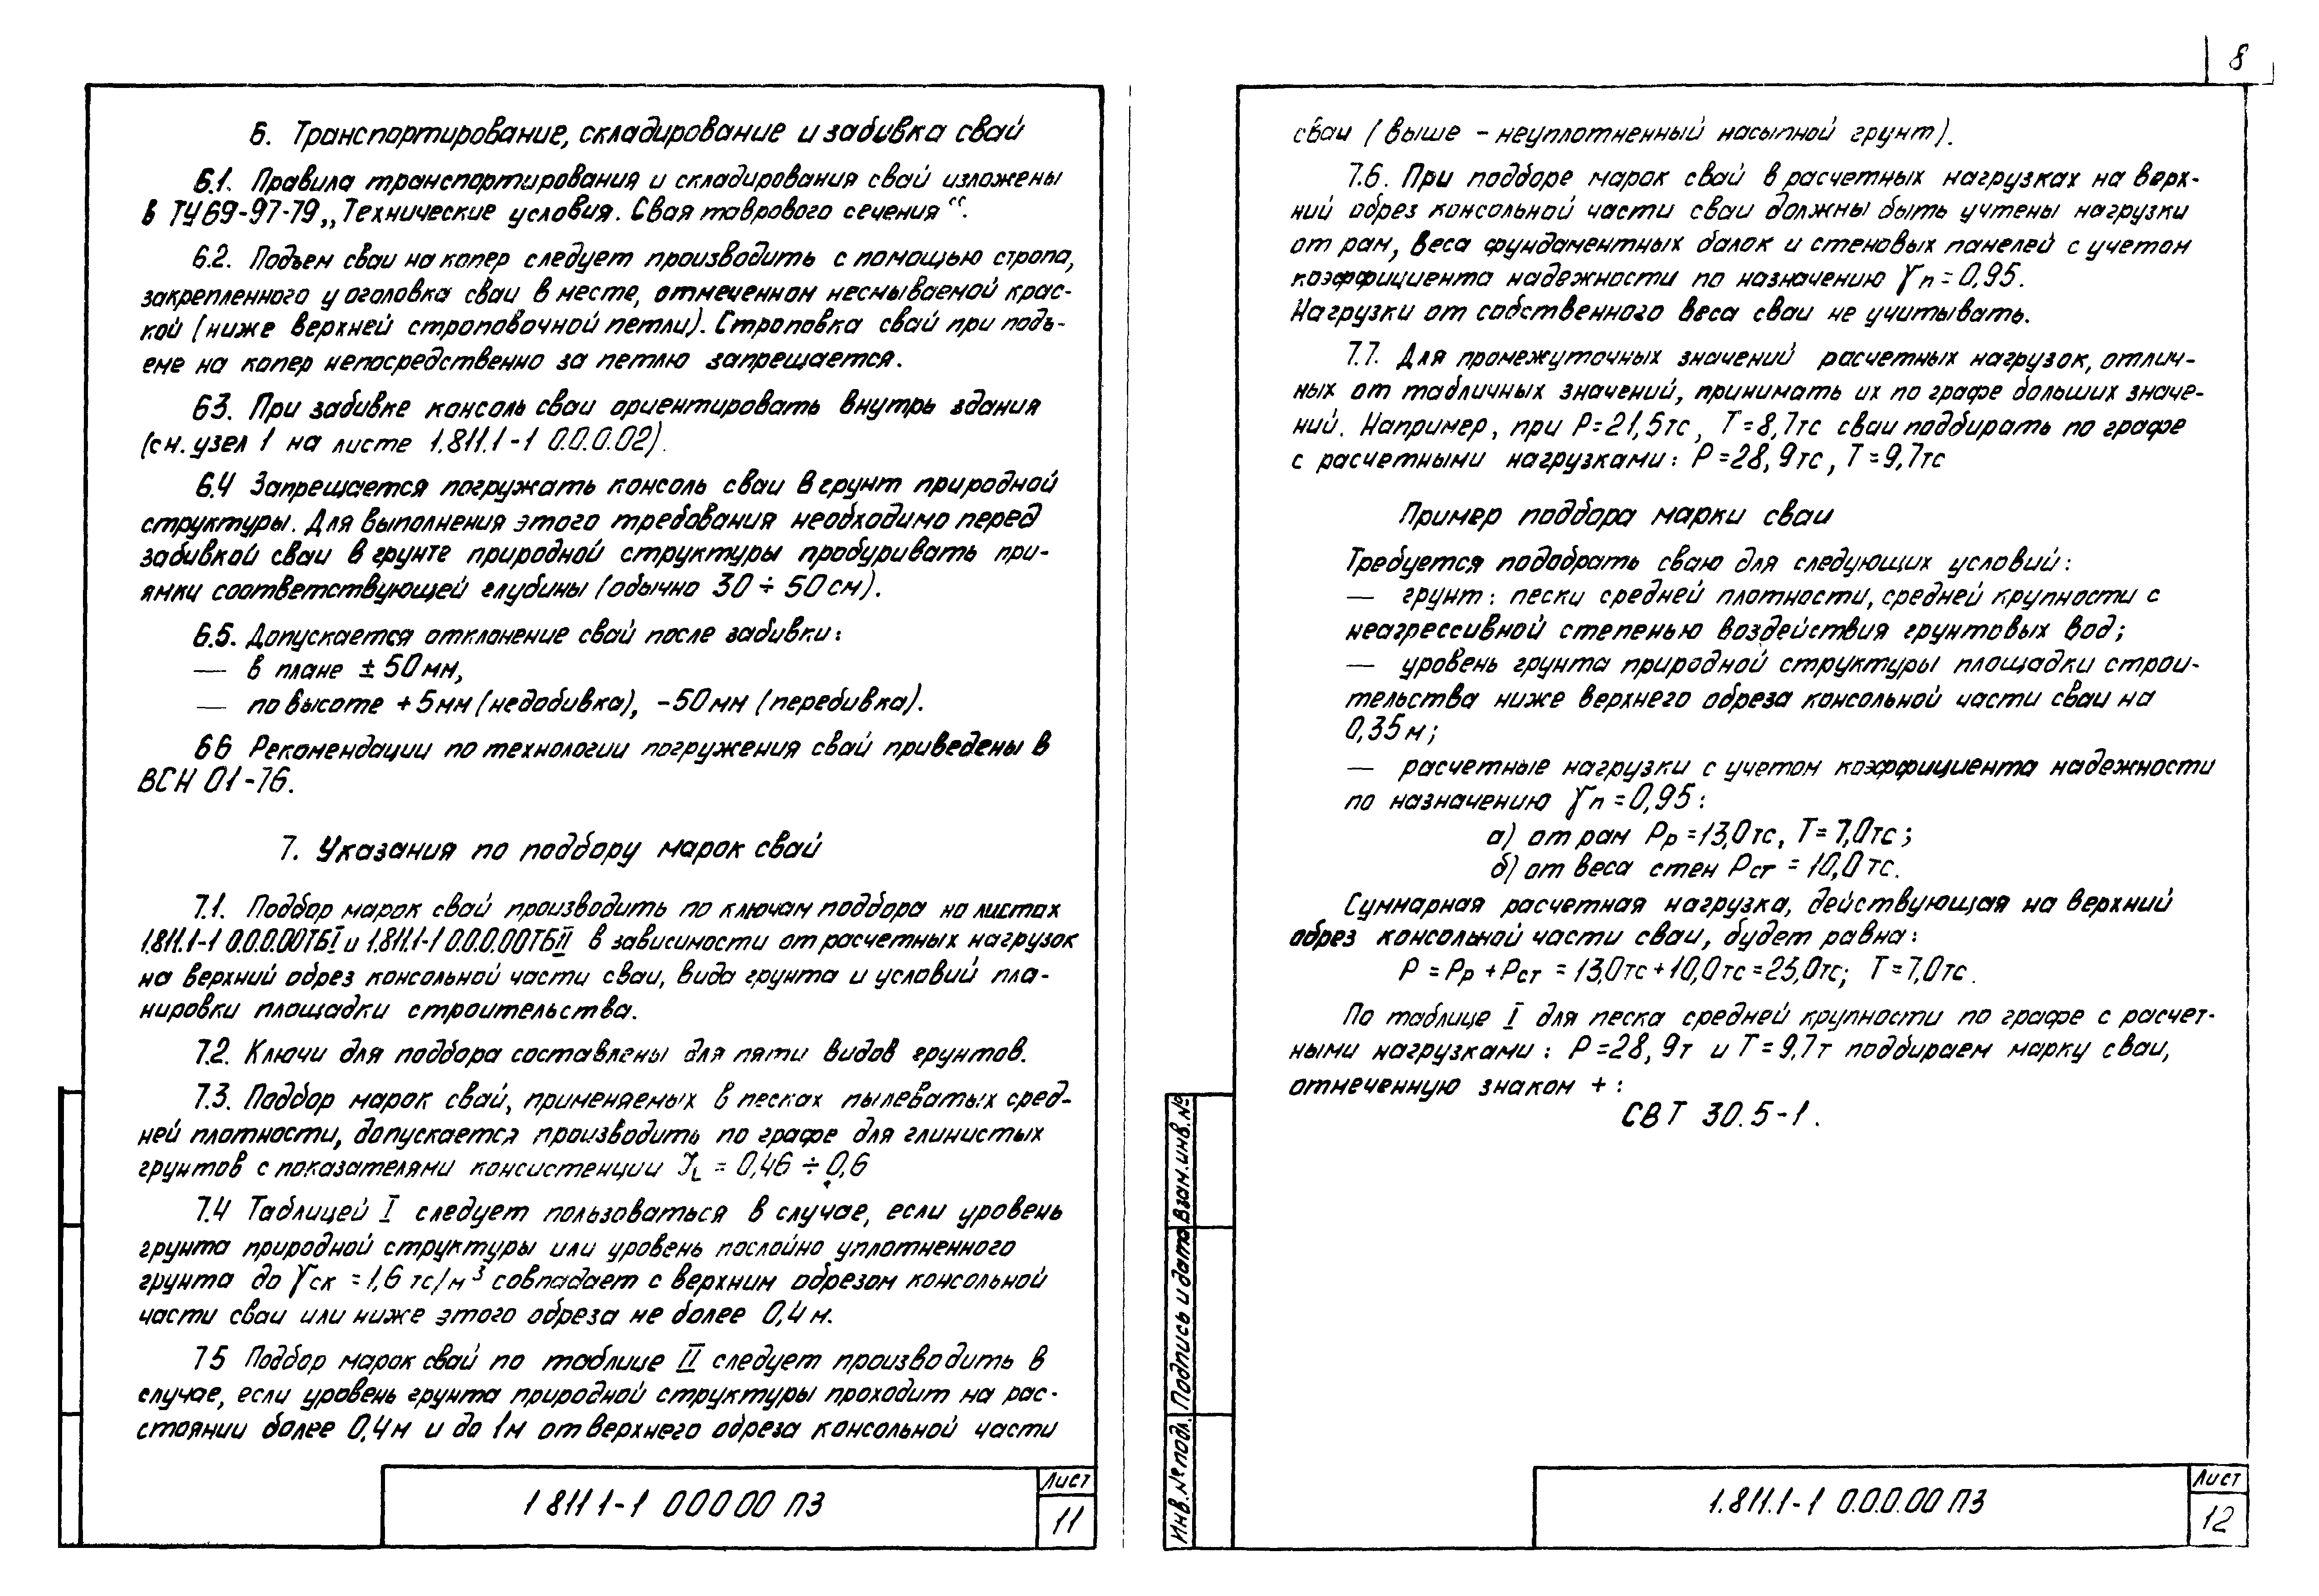 8
6. Транспортирование, складирование и забивка свай
6.1. Правила транспортирования и складирования свай изложены
в ТУ69-97-79„Технические условия. Свая таврового сечения“.
6.2. Подъем сваи на копер следует производить с помощью стропа,
закрепленного у оголовка сваи в месте, отмеченном несмываемой крас-
кой (ниже верхней строповочной петли). Строповка свай при подъ-
еме на копер непосредственно за петлю запрещается.
63. При забивке консоль сваи ориентировать внутрь здания
(см. узел 1 на листе 1.811.1-1 0.0.0.02).
6.4 Запрещается погружать консоль сваи в грунт природной
структуры. Для выполнения этого требования необходимо перед
забивкой сваи в грунте природной структуры пробуривать при-
ямки соответствующей глубины (обычно 30 ÷ 50 см).
6.5. Допускается отклонение свай после забивки:
— в плане ± 50 мм,
— по высоте +5мм (недобивка), -50 мм (перебивка).
66 Рекомендации по технологии погружения свай приведены в
ВСН 01-76.
7. Указания по подбору марок свай
7.1. Подбор марок свай производить по ключам подбора на листах
1.811.1-1 0.0.0.00ТБI и 1.811.1-1 0.0.0.00ТБII в зависимости от расчетных нагрузок
на верхний обрез консольной части сваи, вида грунта и условий пла-
нировки площадки строительства.
7.2. Ключи для подбора составлены для пяти видов грунтов.
7.3. Подбор марок свай, применяемых в песках пылеватых сред-
ней плотности, допускается производить по графе для глинистых
грунтов с показателями консистенции JL = 0,46 ÷ 0,6
7.4 Таблицей I следует пользоваться в случае, если уровень
грунта природной структуры или уровень послойно уплотненного
грунта до γск = 1,6 тс/м³ совпадает с верхним обрезом консольной
части сваи или ниже этого обреза не более 0,4 м.
75 Подбор марок свай по таблице II следует производить в
случае, если уровень грунта природной структуры проходит на рас-
стоянии более 0,4м и до 1м от верхнего обреза консольной части
1 811 1-1 0 0 0 00 ПЗ
Лист
11
сваи (выше - неуплотненный насыпной грунт).
7.6. При подборе марок свай в расчетных нагрузках на верх-
ний обрез консольной части сваи должны быть учтены нагрузки
от рам, веса фундаментных балок и стеновых панелей с учетом
коэффициента надежности по назначению γп = 0,95.
Нагрузки от собственного веса сваи не учитывать.
7.7. Для промежуточных значений расчетных нагрузок, отлич-
ных от табличных значений, принимать их по графе больших значе-
ний. Например, при Р=21,5тс, Т=8,7тс сваи подбирать по графе
с расчетными нагрузками: Р=28,9тс, Т=9,7тс
Пример подбора марки сваи
Требуется подобрать сваю для следующих условий:
— грунт: пески средней плотности, средней крупности с
неагрессивной степенью воздействия грунтовых вод;
— уровень грунта природной структуры площадки строи-
тельства ниже верхнего обреза консольной части сваи на
0,35 м;
— расчетные нагрузки с учетом коэффициента надежности
по назначению γп = 0,95:
а) от рам Рр = 13,0тс, Т = 7,0тс;
б) от веса стен Рст = 10,0 тс.
Суммарная расчетная нагрузка, действующая на верхний
обрез консольной части сваи, будет равна:
Р = Рр + Рст = 13,0тс + 10,0тс = 23,0тс; Т = 7,0тс.
По таблице I для песка средней крупности по графе с расчет-
ными нагрузками: Р=28,9т и Т=9,7т подбираем марку сваи,
отмеченную знаком +:
СВТ 30.5-1.
Инв.№ подл.
Подпись и дата
Взам.инв.№
1.811.1-1 0.0.0.00 ПЗ
Лист
12